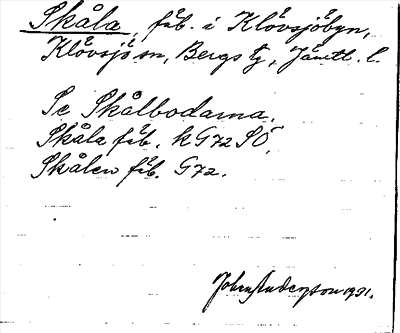 Skåla, fäb. i Klövsjöbyn,
Klövsjö sn, Bergs tg, Jämtl. l.
Se Skålbodarna.
Skåla fäb. k G72 SO
Skålen fäb. G72.
John Anderson 1931.